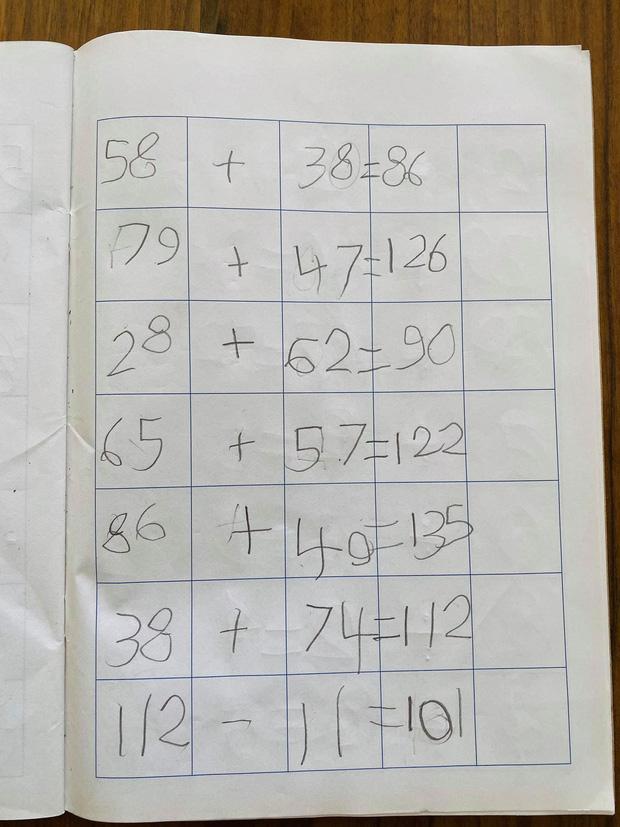 58 + 38=86
79 + 47=126
28 + 62=90
65 + 57=122
86 + 49=135
38 + 74=112
112 - 11=101